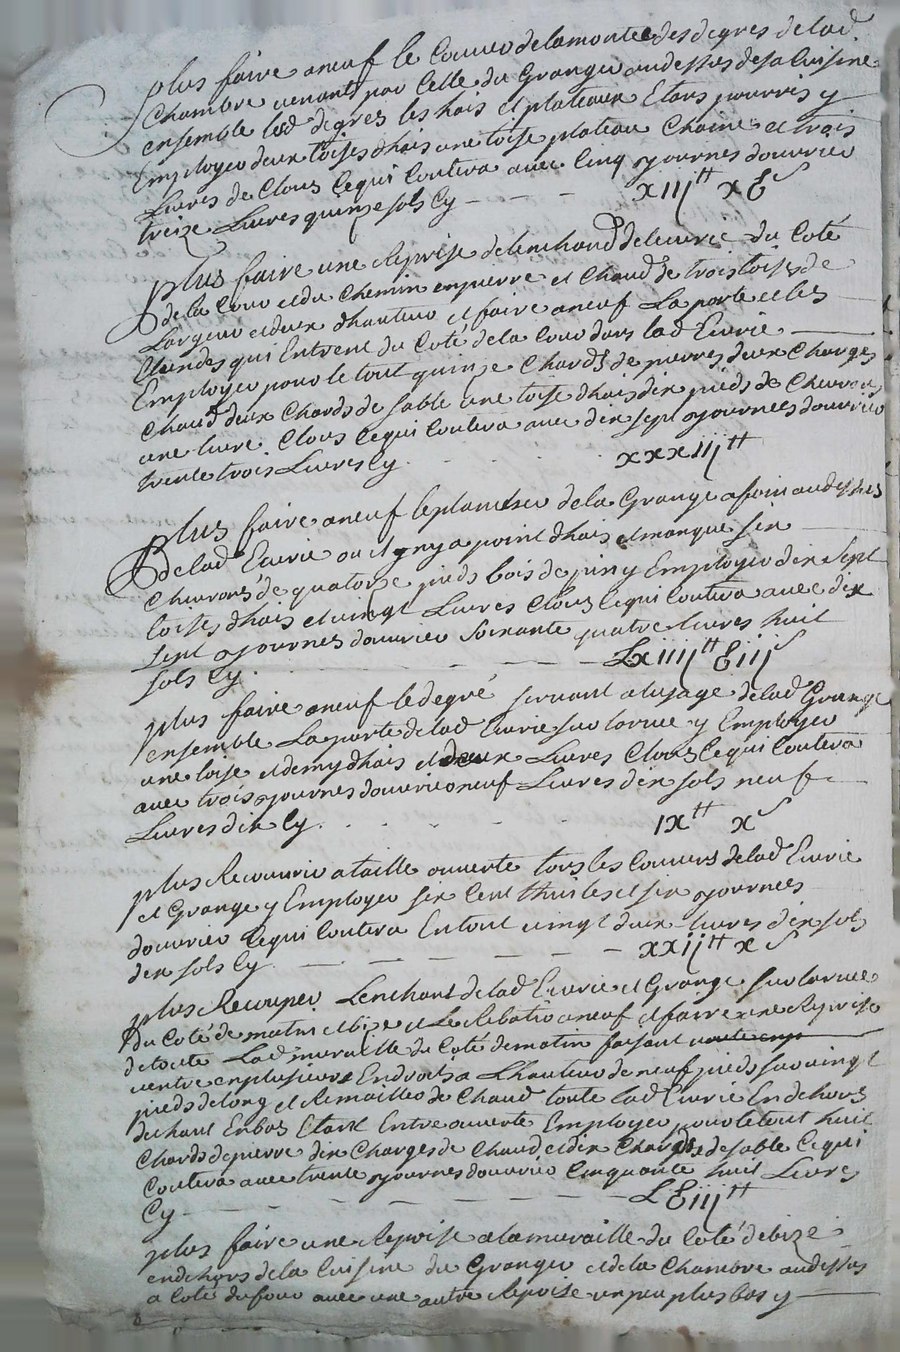 plus faire aneuf le Couver delamontee des degres delad.
Chambre venant par Celle du Granger audessus desa Cuisine
ensemble lesd degres les hais et plateaux Etans pourris y
Employer deux toises dhais une toise plateau Chaine et trois
Livres de Clous Cequi Coutera avec Cinq journes douvrier
treize Livres quinze sols Cy - - - - xiij# xE s
plus faire une Reprise delenchand delecurie du Coté
dela Cour et du Chemin en pierre et Chaud de trois toises de
Largeur et deux dhauteur et faire aneuf La porte et les
qui Entrent du Coté dela Cour dans lad Ecurie
Employer pour le tout quinze Chards de pierres deux Charges
Chaud deux Chards de sable une toise dhais dix pieds de Chevron
une livre Clous Cequi Coutera avec dix sept journees douvrier
trente trois Livres Cy xxxiij#
plus faire aneuf leplancher dela Grange afoin audessus
delad Ecurie ou il ny a point dhais et manque six
Chevrons de quatorze pieds bois de pin y Employer dix sept
toises dhais et vingt Livres Clous Cequi Coutera avec dix
sept journes douvrier soixante quatre Livres huit
sols Cy. - - - - - Lxiiij# Eiij s
plus faire aneuf ledegré servant alusage delad Grange
ensemble La porte delad Ecurie sur larue y Employer
une toise et demy dhais et deux Livres Clous Cequi Coutera
avec trois journes douvrier neuf Livres dix sols neuf
Livres dix Cy. ix# x s
plus Recouvrir ataille ouverte tous les Couvers delad Ecurie
et Grange y Employer six Cent thuiles et six journees
douvrier Cequi Coutera En tout vingt deux Livres dix sols
dix sols Cy - - - - - xxij# x s
plus Recouper Lenchant delad Ecurie et Grange sur larue
du Coté de matin et bize et Le Rebatir aneuf et faire une Reprise
detoute Lad muraille du Coté dematin faisant
ventre enplusieurs Endroits a Lhauteur de neuf pieds sur vingt
pieds de long et Remailler de Chaud toute lad Ecurie En dehors
du haut En bas Etant Entre ouverte Employer pour le tout huit
Chards de pierre dix Charges de Chaud et dix Chards de sable Cequi
Coutera avec trente journes douvrier Cinquante huit Livres
Cy - - - - - LEiij#
plus faire une Reprise alamuraille du Coté de bize
endehors dela Cuisine du Granger et dela Chambre audessus
a Coté dufour avec une autre Reprise un peu plus bas y